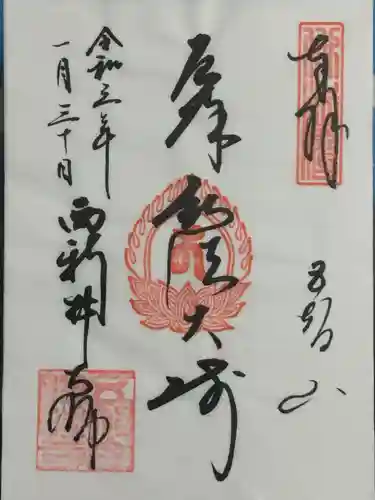 奉拝
五智山
厄除弘法大師
令和三年
一月三十日
西新井